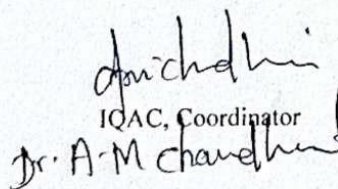 IQAC, Coordinator
Dr. A-M Chaudhari